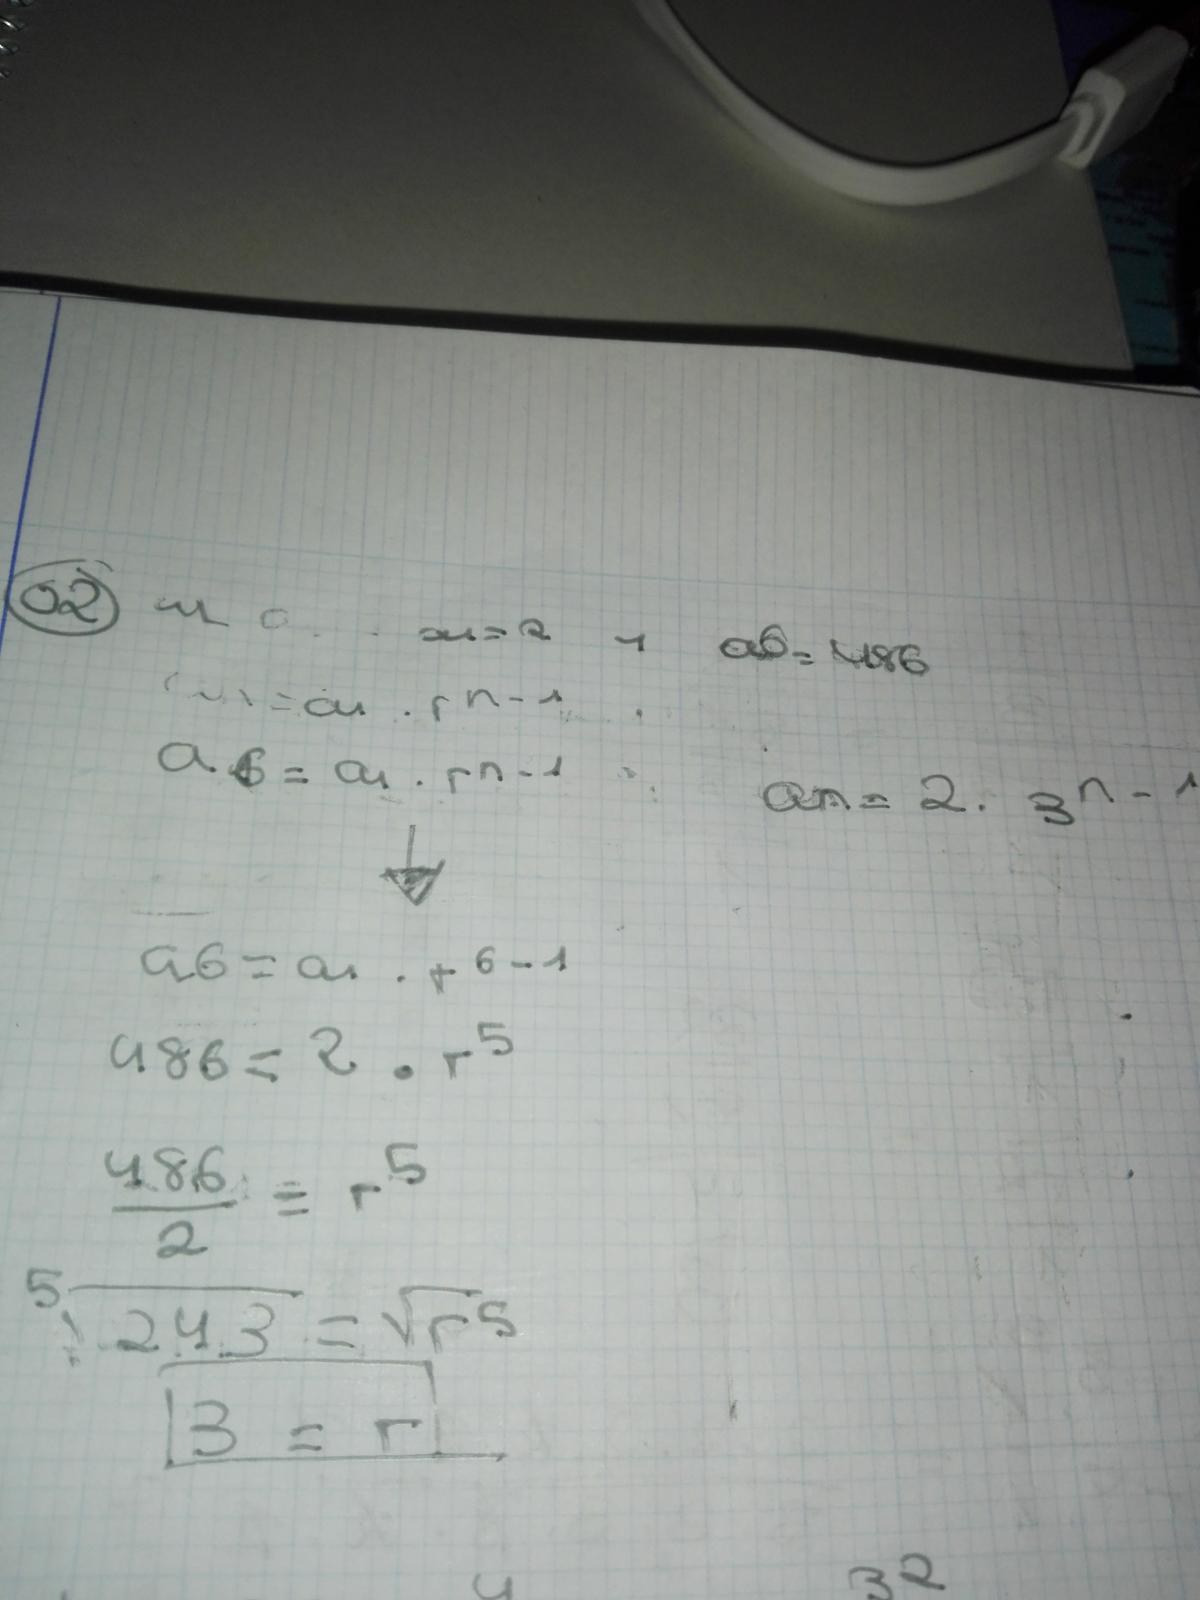 02 a1=2 y a6=486
= a1 . r n-1
a6 = a1 . r n-1
an = 2. 3 n-1
a6 = a1 . r 6-1
486 = 2 . r 5
486
2 = r 5
5 √243 = √r 5
3 = r
4 32